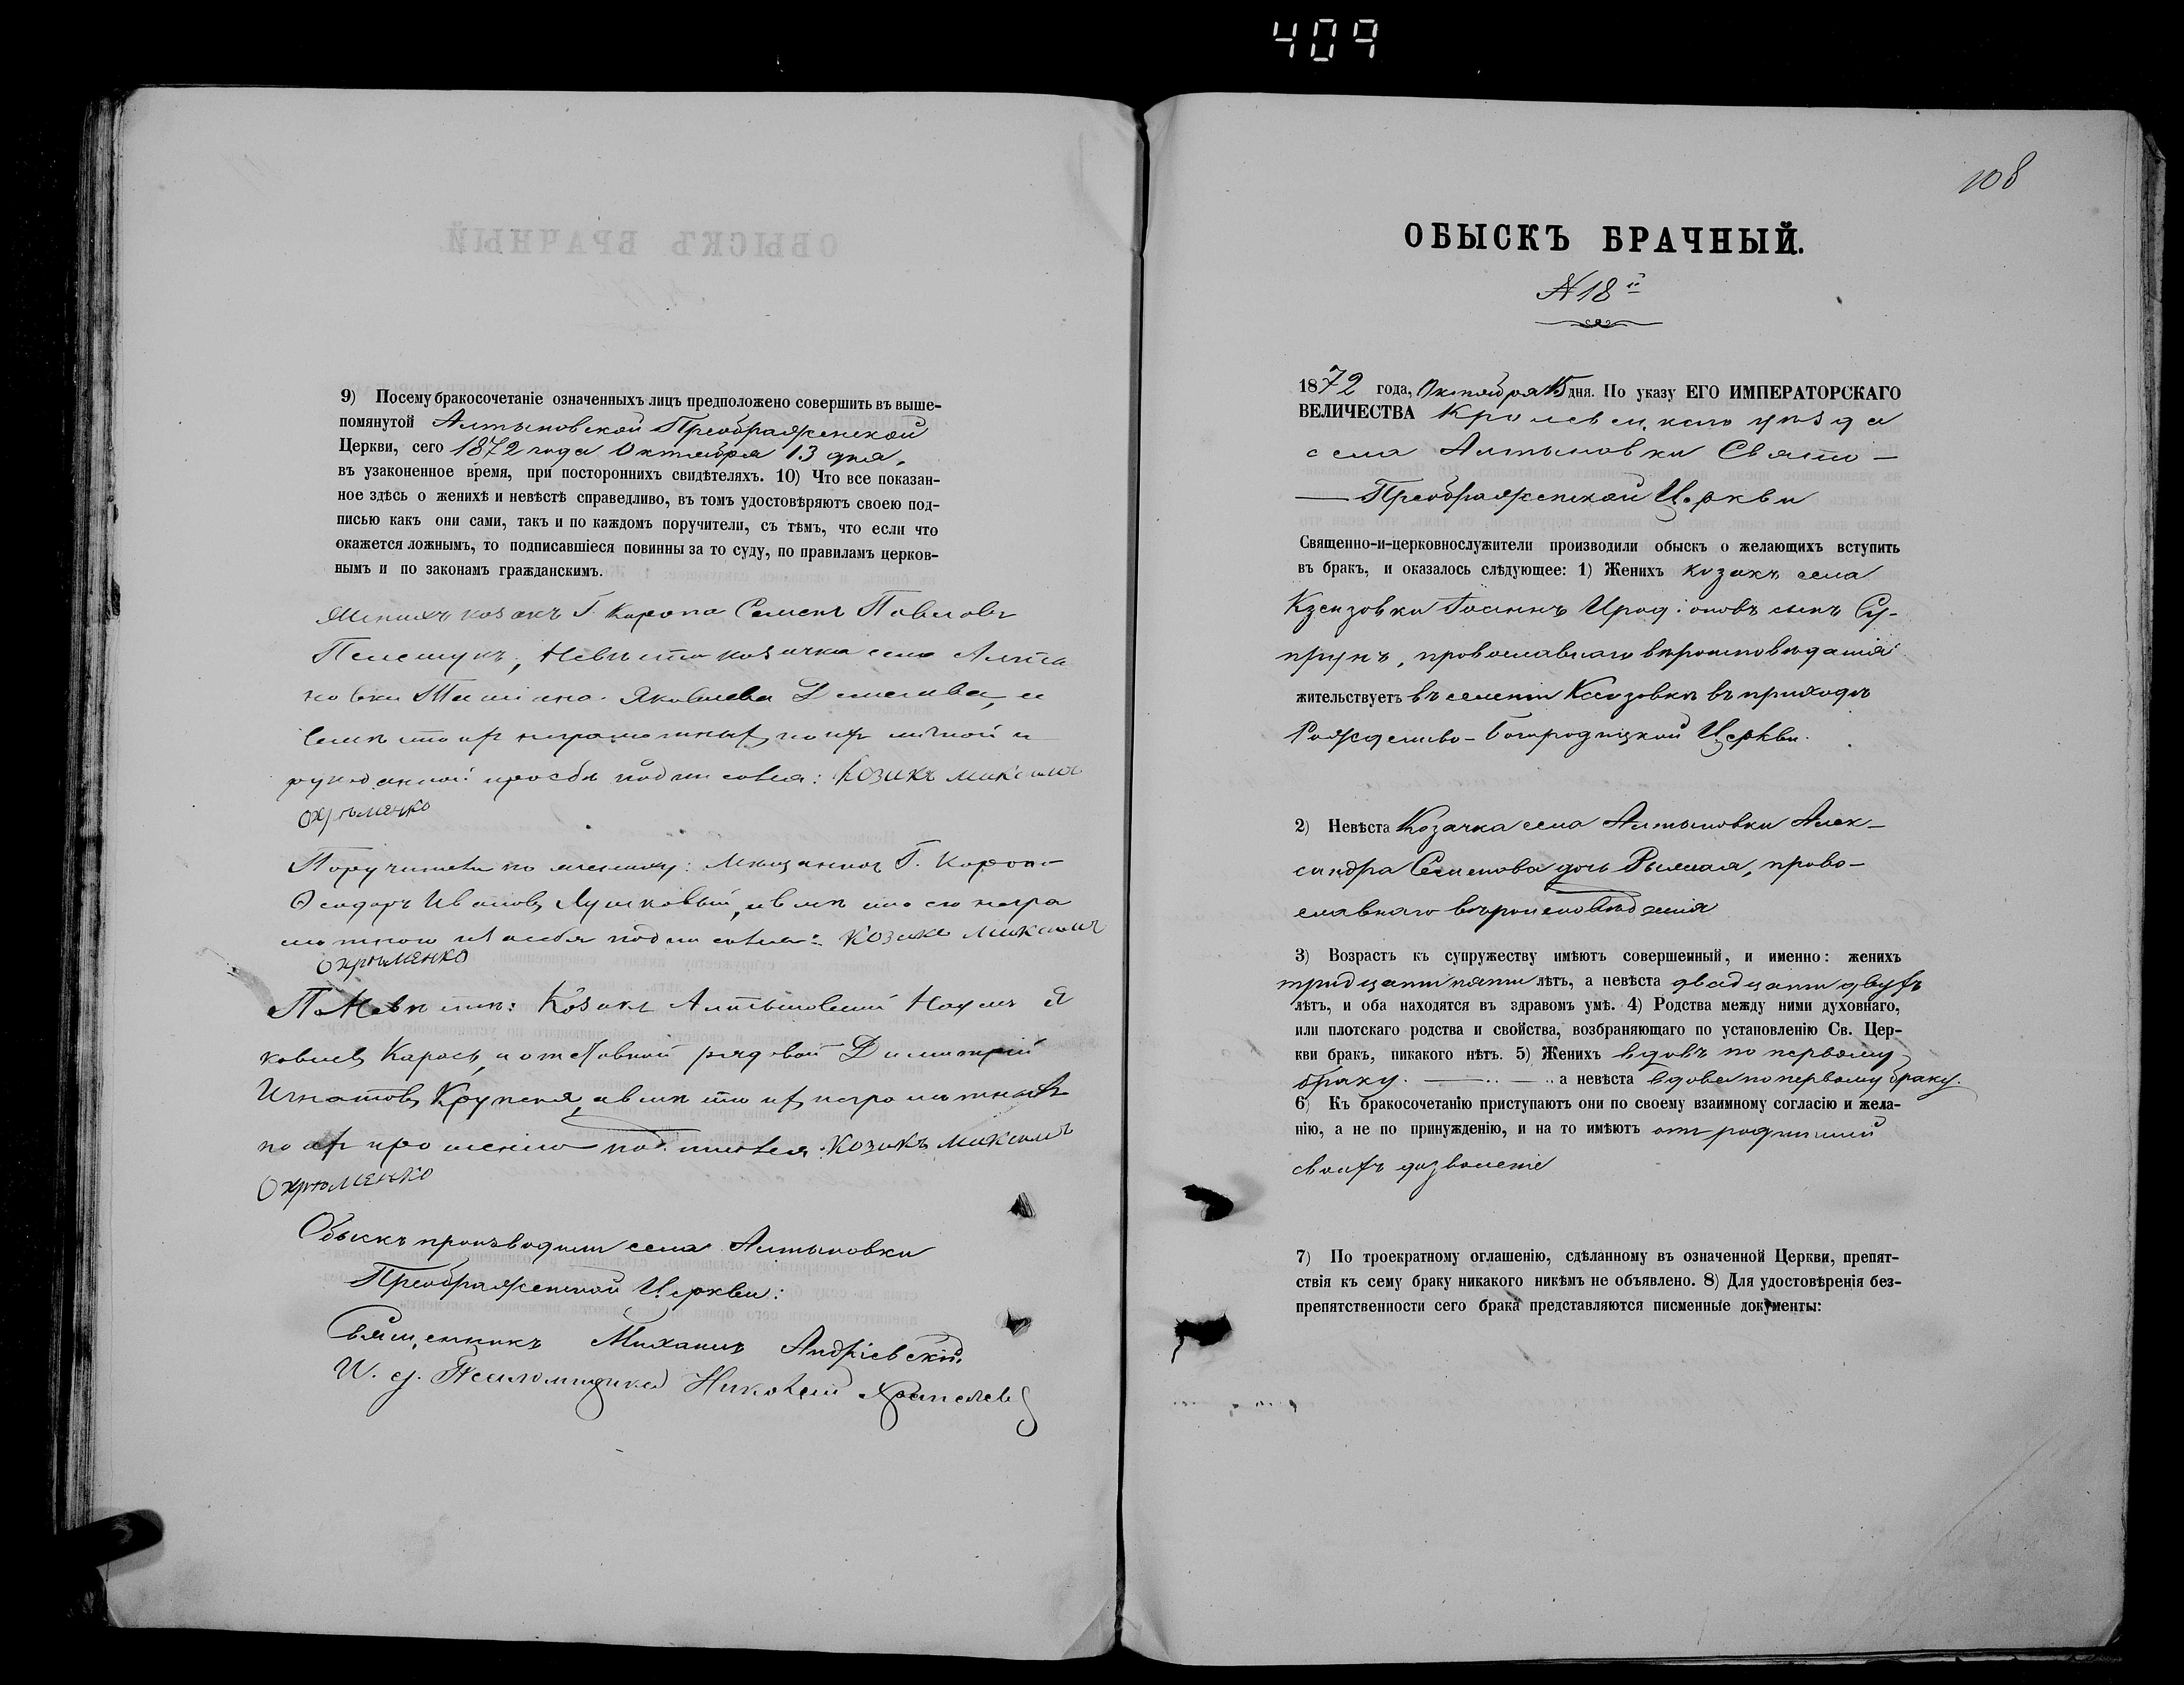 409
9) Посему бракосочетаніе означенныхъ лицъ предположено совершить въ выше-
помянутой Алтыновской Преображенской
Церкви, сего 1872 года Октября 13 дня,
въ узаконенное время, при постороннихъ свидѣтеляхъ. 10) Что все показан-
ное здѣсь о женихѣ и невѣстѣ справедливо, въ томъ удостовѣряютъ своею под-
писью какъ они сами, такъ и по каждомъ поручители, съ тѣмъ, что если что
окажется ложнымъ, то подписавшіеся повинны за то суду, по правиламъ церков-
нымъ и по законамъ гражданскимъ.
Женихъ козакъ Г. Коропа Семенъ Павловъ
Пелешукъ, Невѣста козачка села Алты
новки Яковлева
неграмотныхъ по ихъ личной и
рукоданной просьбѣ подписался: Козакъ Максимъ
Охрѣменко
Поручители по женихѣ: Мѣщанинъ Г. Коропа
Ѳеодоръ Ивановъ а вмѣсто его негра
мотного и за себя подписался: Козакъ Максимъ
Охрѣменко
По Невѣстѣ: Козакъ Алтыновскій Наумъ Я
ковлевъ Карась, и отставной рядовой Димитрій
Игнатовъ а вмѣсто ихъ неграмотныхъ
по ихъ прошенію подписался Козакъ Максимъ
Охрѣменко
Обыскъ производили села Алтыновки
Преображенской Церкви:
Священникъ Михаилъ Андріевскій
И. д. Псаломщика Николай
108
ОБЫСКЪ БРАЧНЫЙ.
№ 18й
1872 года, Октября 15 дня. По указу ЕГО ИМПЕРАТОРСКАГО
ВЕЛИЧЕСТВА Кролевецкаго уѣзда
села Алтыновки Свято-
— Преображенской Церкви
Священно-и-церковнослужители производили обыскъ о желающихъ вступить
въ бракъ, и оказалось слѣдующее: 1) Женихъ козакъ села
Іоаннъ Иродіоновъ сынъ Су-
прунъ, православнаго вѣроисповѣданія
жительствуетъ въ селеніи въ приходѣ
Рождество-Богородицкой Церкви.
2) Невѣста Козачка села Алтыновки Алек-
сандра Семенова дочь право-
славнаго вѣроисповѣданія
3) Возрастъ къ супружеству имѣютъ совершенный, и именно: женихъ
тридцати пяти лѣтъ, а невѣста двадцати двухъ
лѣтъ, и оба находятся въ здравомъ умѣ. 4) Родства между ними духовнаго,
или плотскаго родства и свойства, возбраняющаго по установленію Св. Цер-
кви бракъ, никакого нѣтъ. 5) Женихъ вдовъ по первому
браку. а невѣста вдова по первому браку.
6) Къ бракосочетанію приступаютъ они по своему взаимному согласію и жела-
нію, а не по принужденію, и на то имѣютъ отъ родителей
своихъ дозволеніе
7) По троекратному оглашенію, сдѣланному въ означенной Церкви, препят-
ствія къ сему браку никакого никѣмъ не объявлено. 8) Для удостовѣренія без-
препятственности сего брака представляются писменные документы: